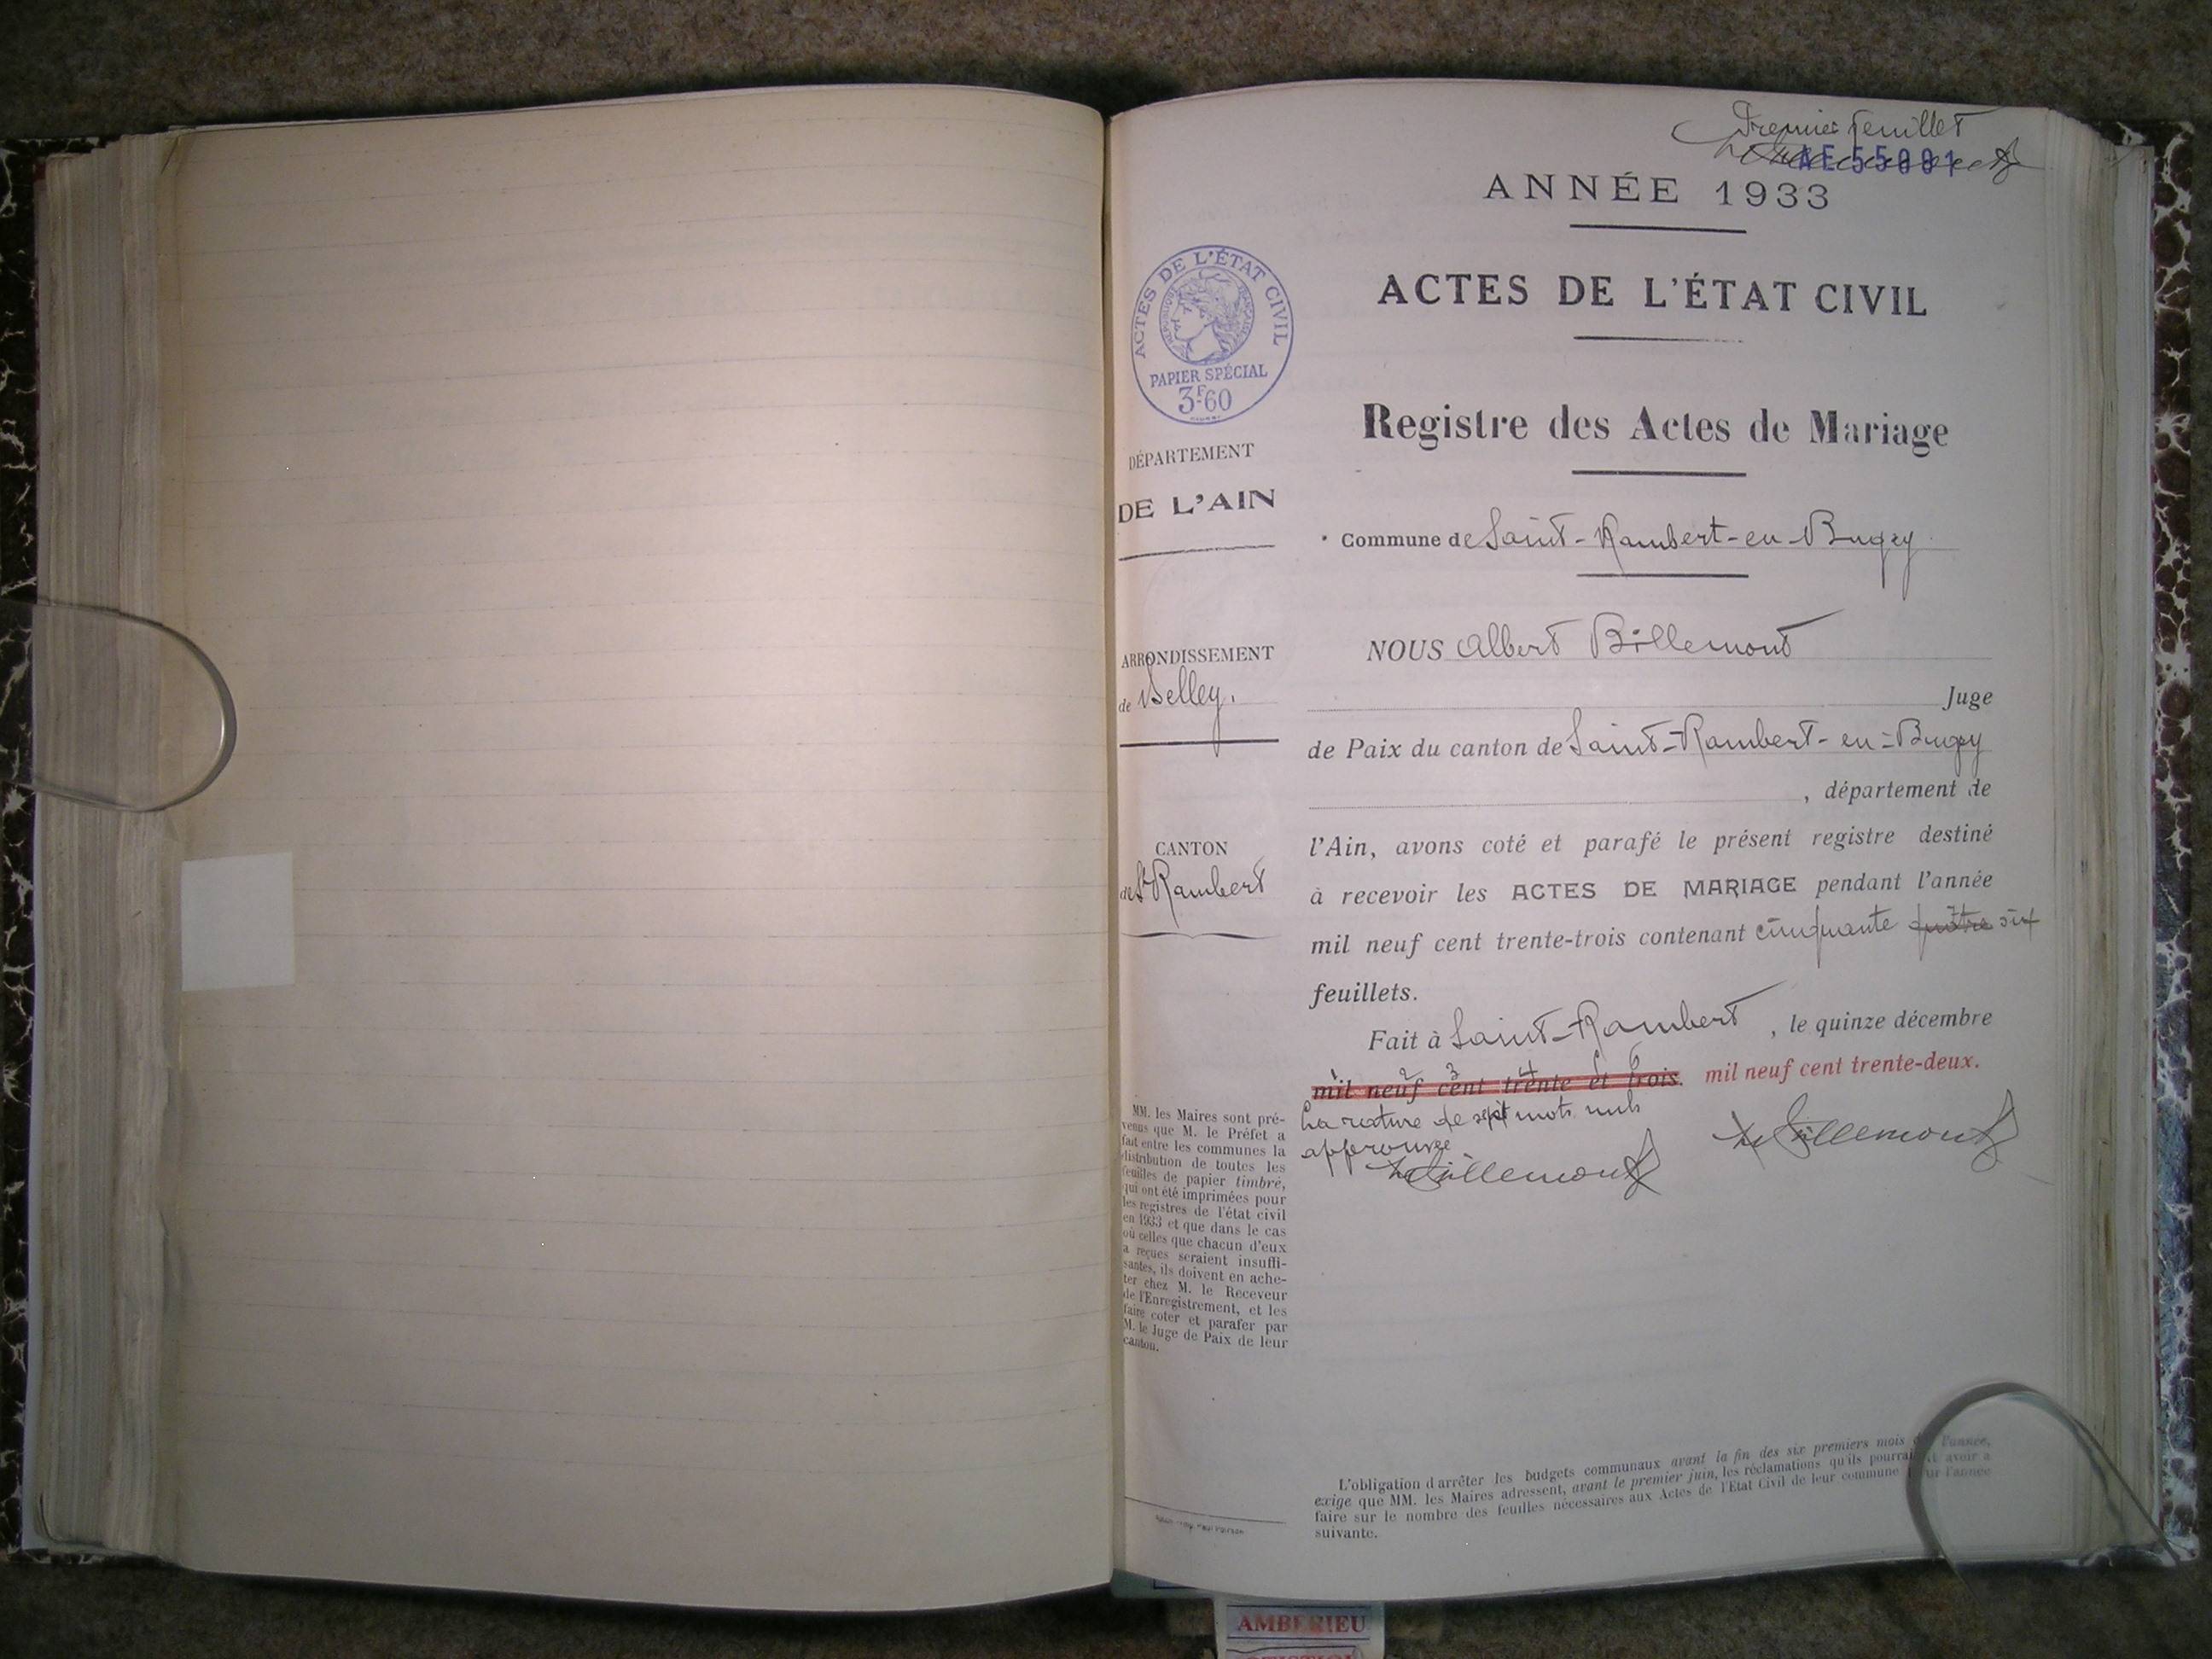 Premier feuillet
AE 55001
ANNÉE 1933
ACTES DE L'ÉTAT CIVIL
Registre des Actes de Mariage
Commune de Saint-Rambert-en-Bugey
NOUS Albert Billemont
Juge
de Paix du canton de Saint-Rambert-en-Bugey
, département de
l'Ain, avons coté et parafé le présent registre destiné
à recevoir les ACTES DE MARIAGE pendant l'année
mil neuf cent trente-trois contenant cinquante quatre six
feuillets.
Fait à Saint-Rambert, le quinze décembre
mil neuf cent trente et trois. mil neuf cent trente-deux.
1 2 3 4 5 6
La rature de sept mots nuls
approuvée
Billemont
Billemont
ACTES DE L'ÉTAT CIVIL
RÉPUBLIQUE FRANÇAISE
PAPIER SPÉCIAL
3F60
DÉPARTEMENT
DE L'AIN
ARRONDISSEMENT
de Belley.
CANTON
de St Rambert
MM. les Maires sont pré-
venus que M. le Préfet a
fait entre les communes la
distribution de toutes les
feuilles de papier timbré,
qui ont été imprimées pour
les registres de l'état civil
en 1933 et que dans le cas
où celles que chacun d'eux
a reçues seraient insuffi-
santes, ils doivent en ache-
ter chez M. le Receveur
de l'Enregistrement, et les
faire coter et parafer par
M. le Juge de Paix de leur
canton.
L'obligation d'arrêter les budgets communaux avant la fin des six premiers mois de l'année,
exige que MM. les Maires adressent, avant le premier juin, les réclamations qu'ils pourraient avoir à
faire sur le nombre des feuilles nécessaires aux Actes de l'Etat Civil de leur commune pour l'année
suivante.
AMBERIEU